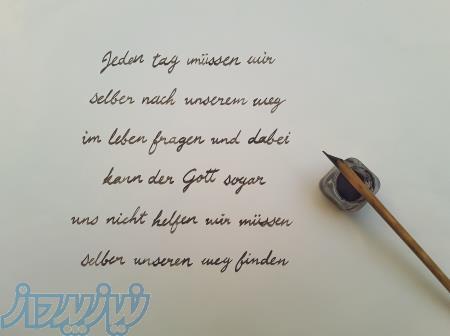 Jeden tag müssen wir
selber nach unserem weg
im leben fragen und dabei
kann der Gott sogar
uns nicht helfen wir müssen
selber unseren weg finden
نیازپرداز